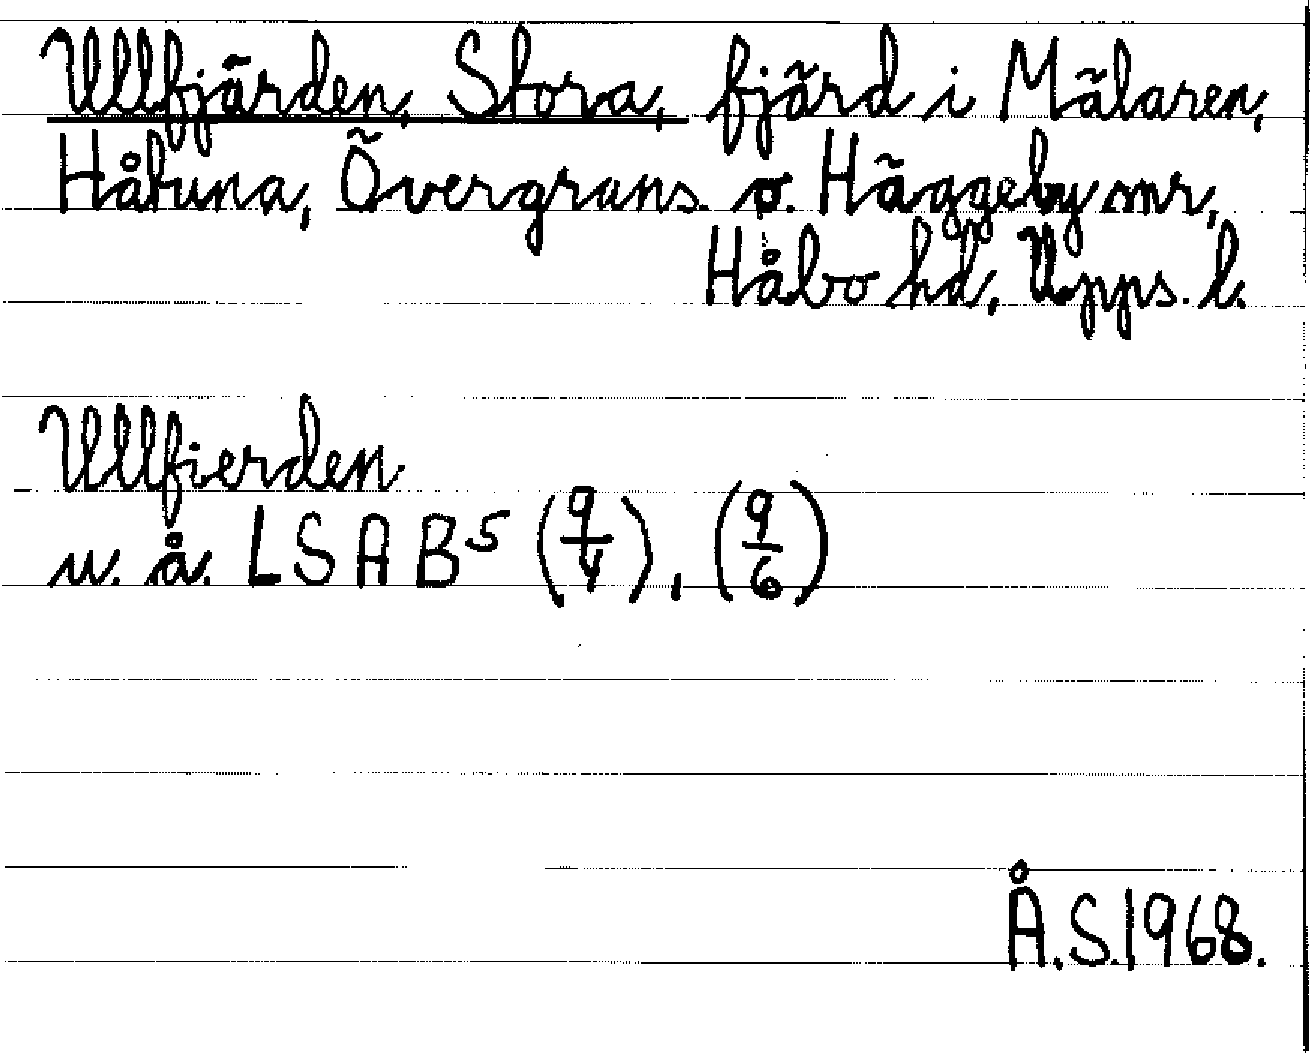 Ullfjärden, Stora, fjärd i Mälaren,
Håtuna, Övergrans. o. Häggeby snr,
Håbo hd, Upps. l.
Ullfierden
u. å. LSA B5 (9/4), (9/6)
Å.S.1968.